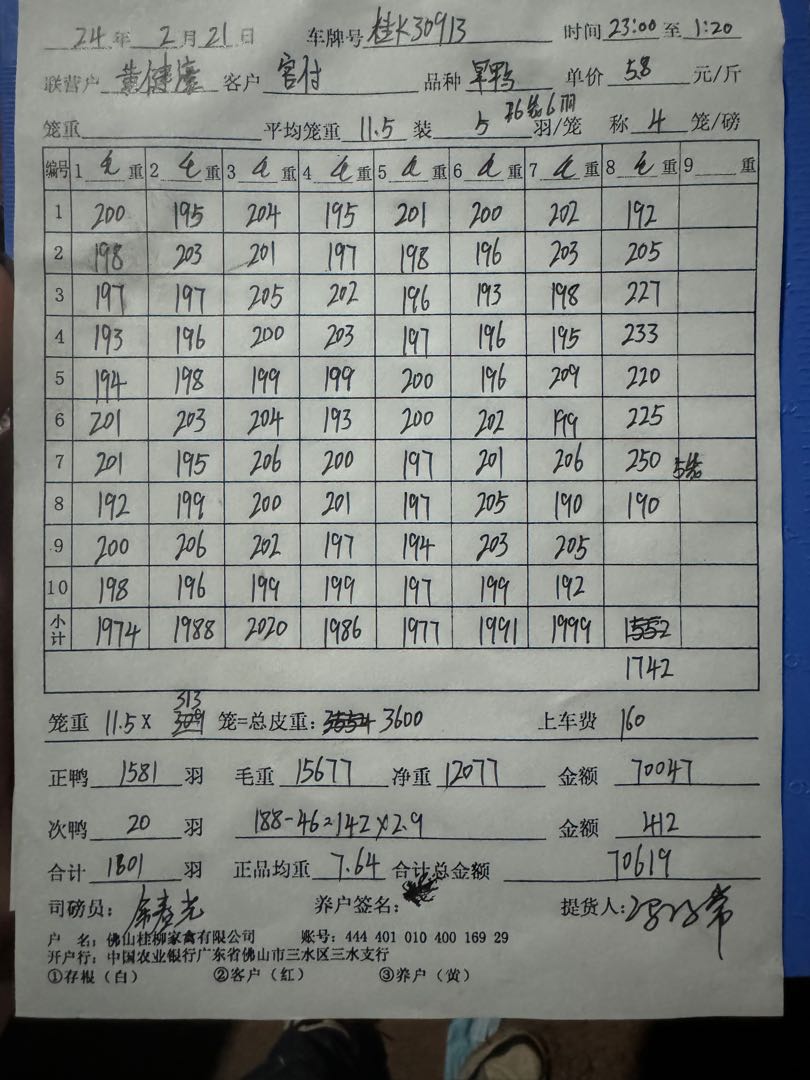 24 年 2 月 21 日 车牌号 桂K30913 时间 23:00 至 1:20
联营户 黄健康 客户 官付 品种 旱鸭 单价 5.8 元/斤
笼重 平均笼重 11.5 装 5 羽/笼 称 4 笼/磅
编号 1 毛 重 2 毛 重 3 毛 重 4 毛 重 5 毛 重 6 毛 重 7 毛 重 8 毛 重 9 重
1 200 195 204 195 201 200 202 192
2 198 203 201 197 198 196 203 205
3 197 197 205 202 196 193 198 227
4 193 196 200 203 197 196 195 233
5 194 198 199 199 200 196 209 220
6 201 203 204 193 200 202 199 225
7 201 195 206 200 197 201 206 250 5笼
8 192 199 200 201 197 205 190 190
9 200 206 202 197 194 203 205
10 198 196 199 199 197 199 192
小计 1974 1988 2020 1986 1977 1991 1999 1552
1742
笼重 11.5 X 313 笼=总皮重: 3600 上车费 160
正鸭 1581 羽 毛重 15677 净重 12077 金额 70047
次鸭 20 羽 188-46=142×2.9 金额 412
合计 1601 羽 正品均重 7.64 合计总金额 70619
司磅员: 养户签名: 提货人:
户 名: 佛山桂柳家禽有限公司 账号: 444 401 010 400 169 29
开户行: 中国农业银行广东省佛山市三水区三水支行
①存根（白） ②客户（红） ③养户（黄）